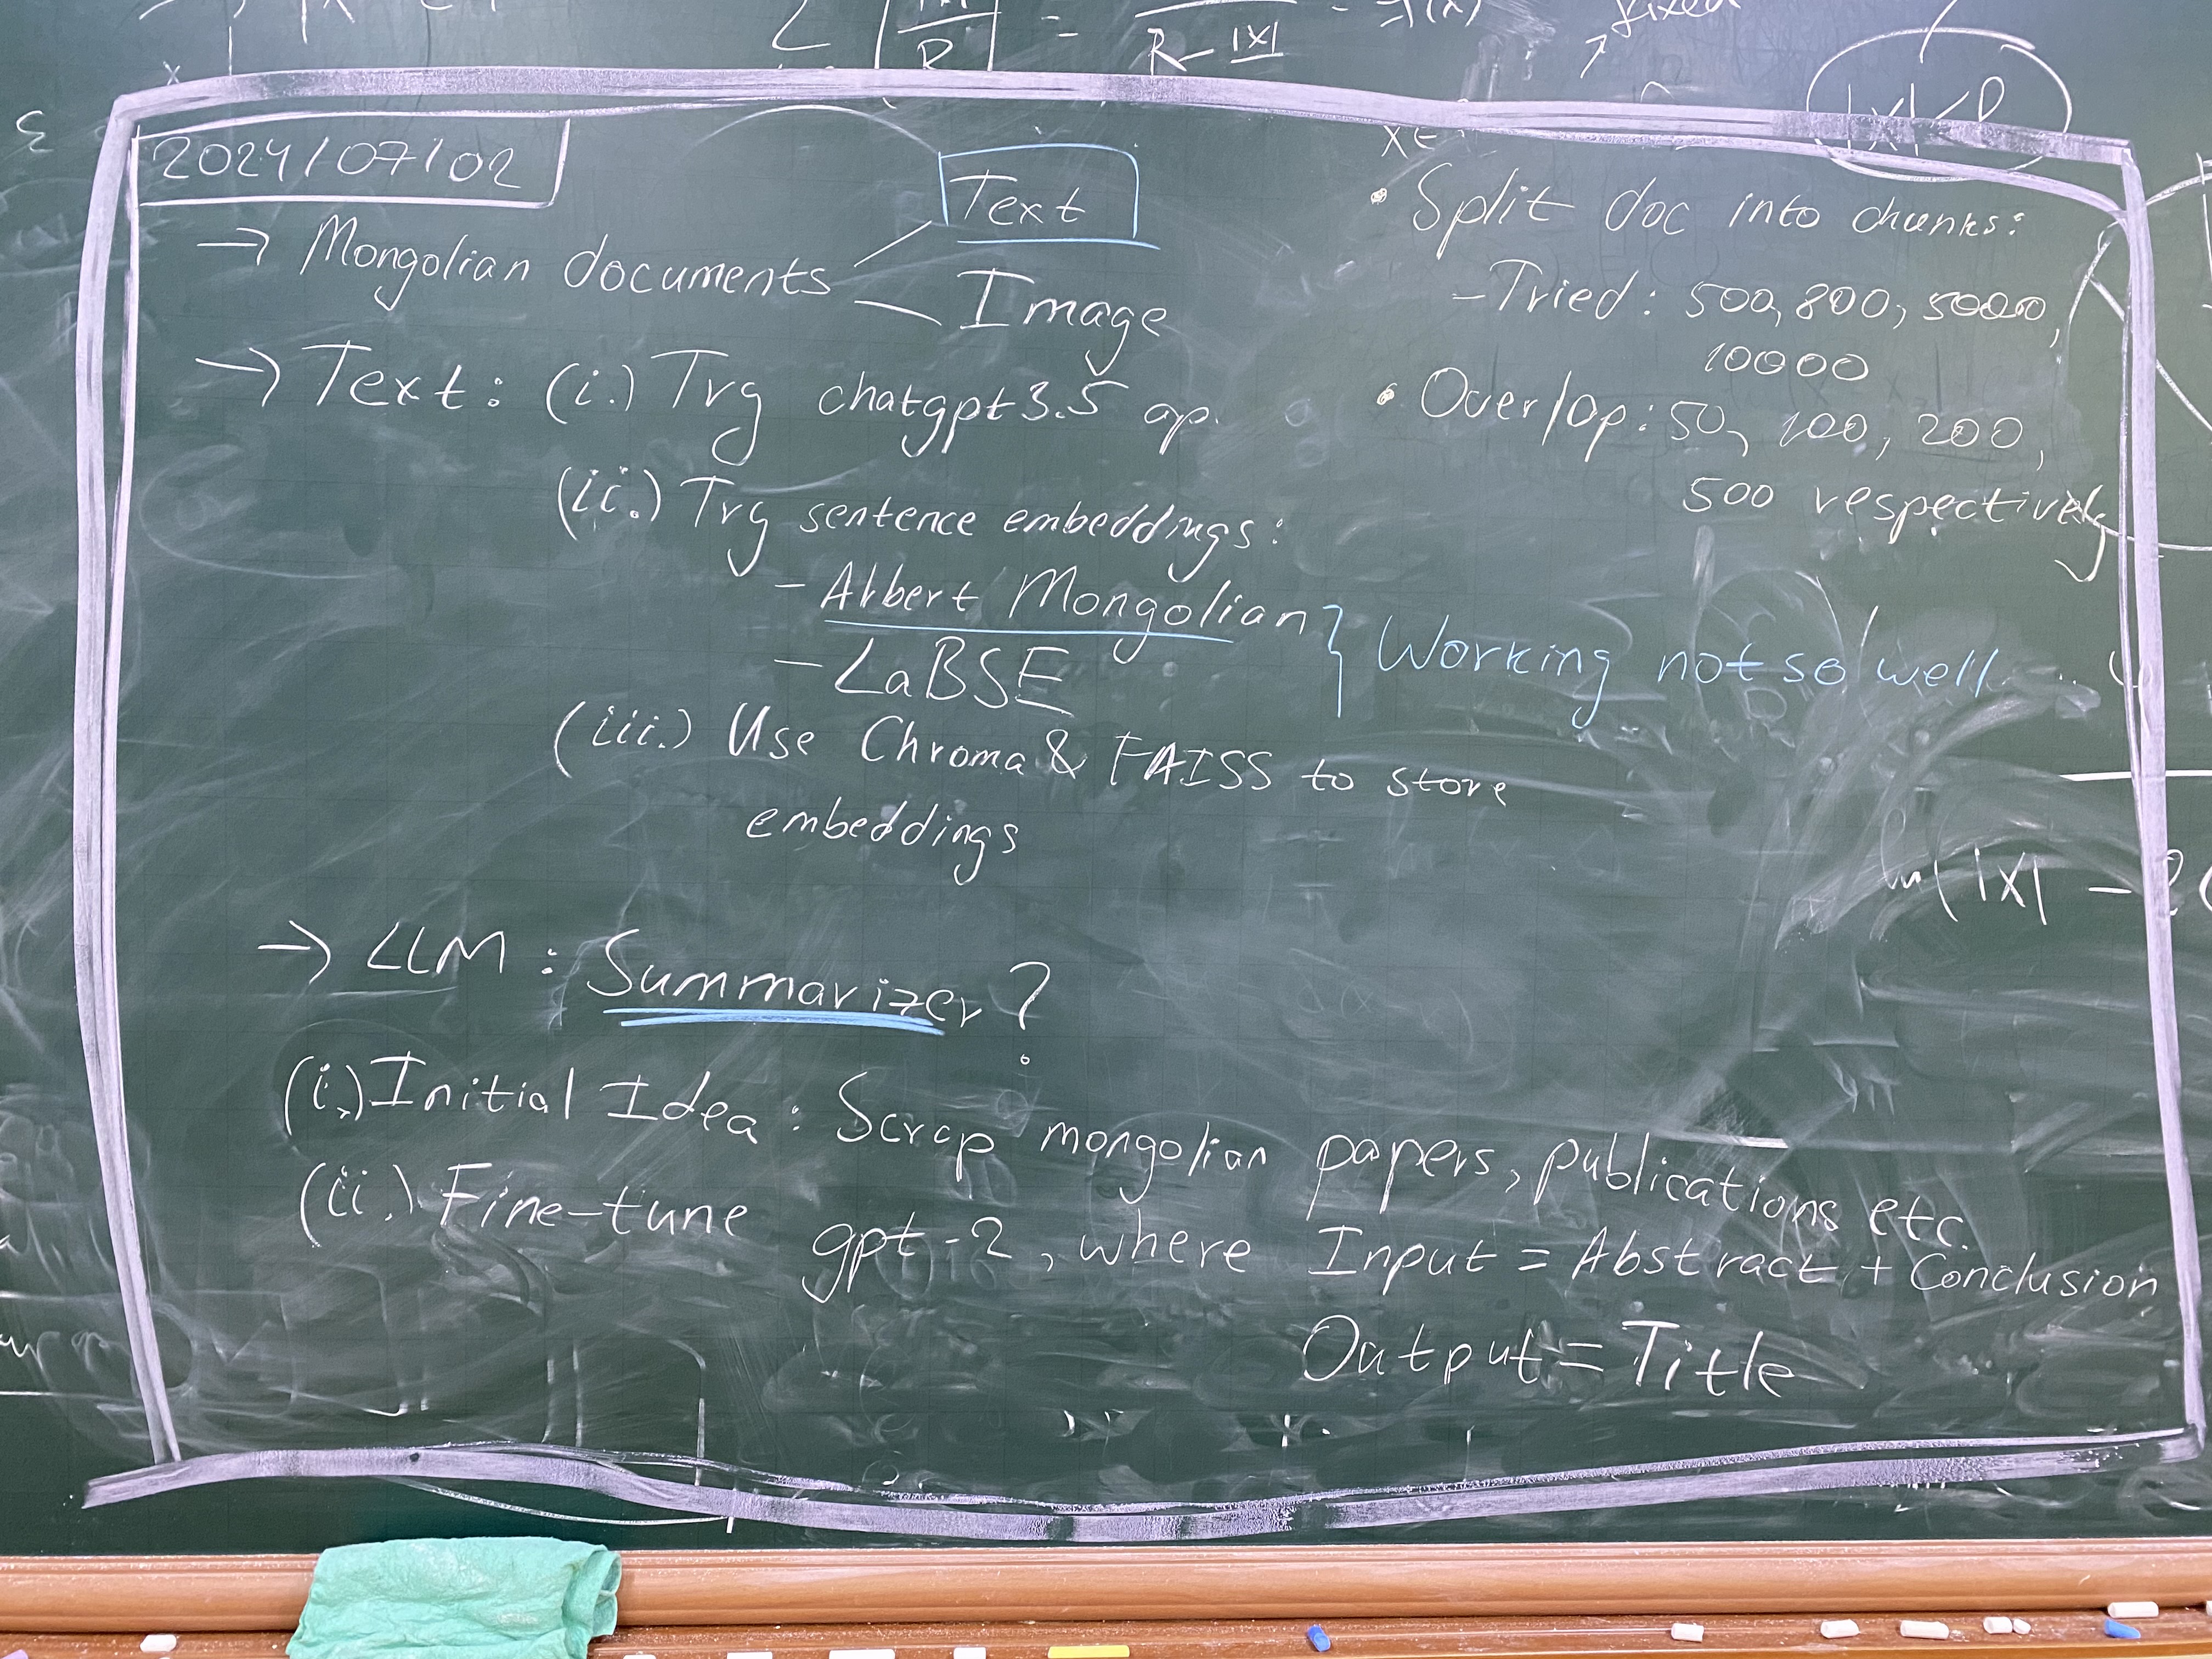 2024/07/02
→ Mongolian documents
Text
Image
→ Text: (i.) Try chatgpt3.5 ap.
(ii.) Try sentence embeddings:
- Albert Mongolian
- LaBSE
} Working not so well
(iii.) Use Chroma & FAISS to store
embeddings
• Split doc into chunks:
- Tried: 500, 800, 5000,
10000
• Overlap: 50, 100, 200,
500 respectively
→ LLM: Summarizer?
(i.) Initial Idea: Scrap mongolian papers, publications etc.
(ii.) Fine-tune gpt-2, where Input = Abstract + Conclusion
Output = Title
fixed
R - |X|
ln(|X| -